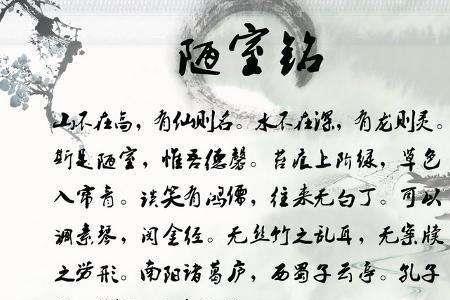 陋室铭
山不在高，有仙则名。水不在深，有龙则灵。
斯是陋室，惟吾德馨。苔痕上阶绿，草色
入帘青。谈笑有鸿儒，往来无白丁。可以
调素琴，阅金经。无丝竹之乱耳，无案牍
之劳形。南阳诸葛庐，西蜀子云亭。孔子